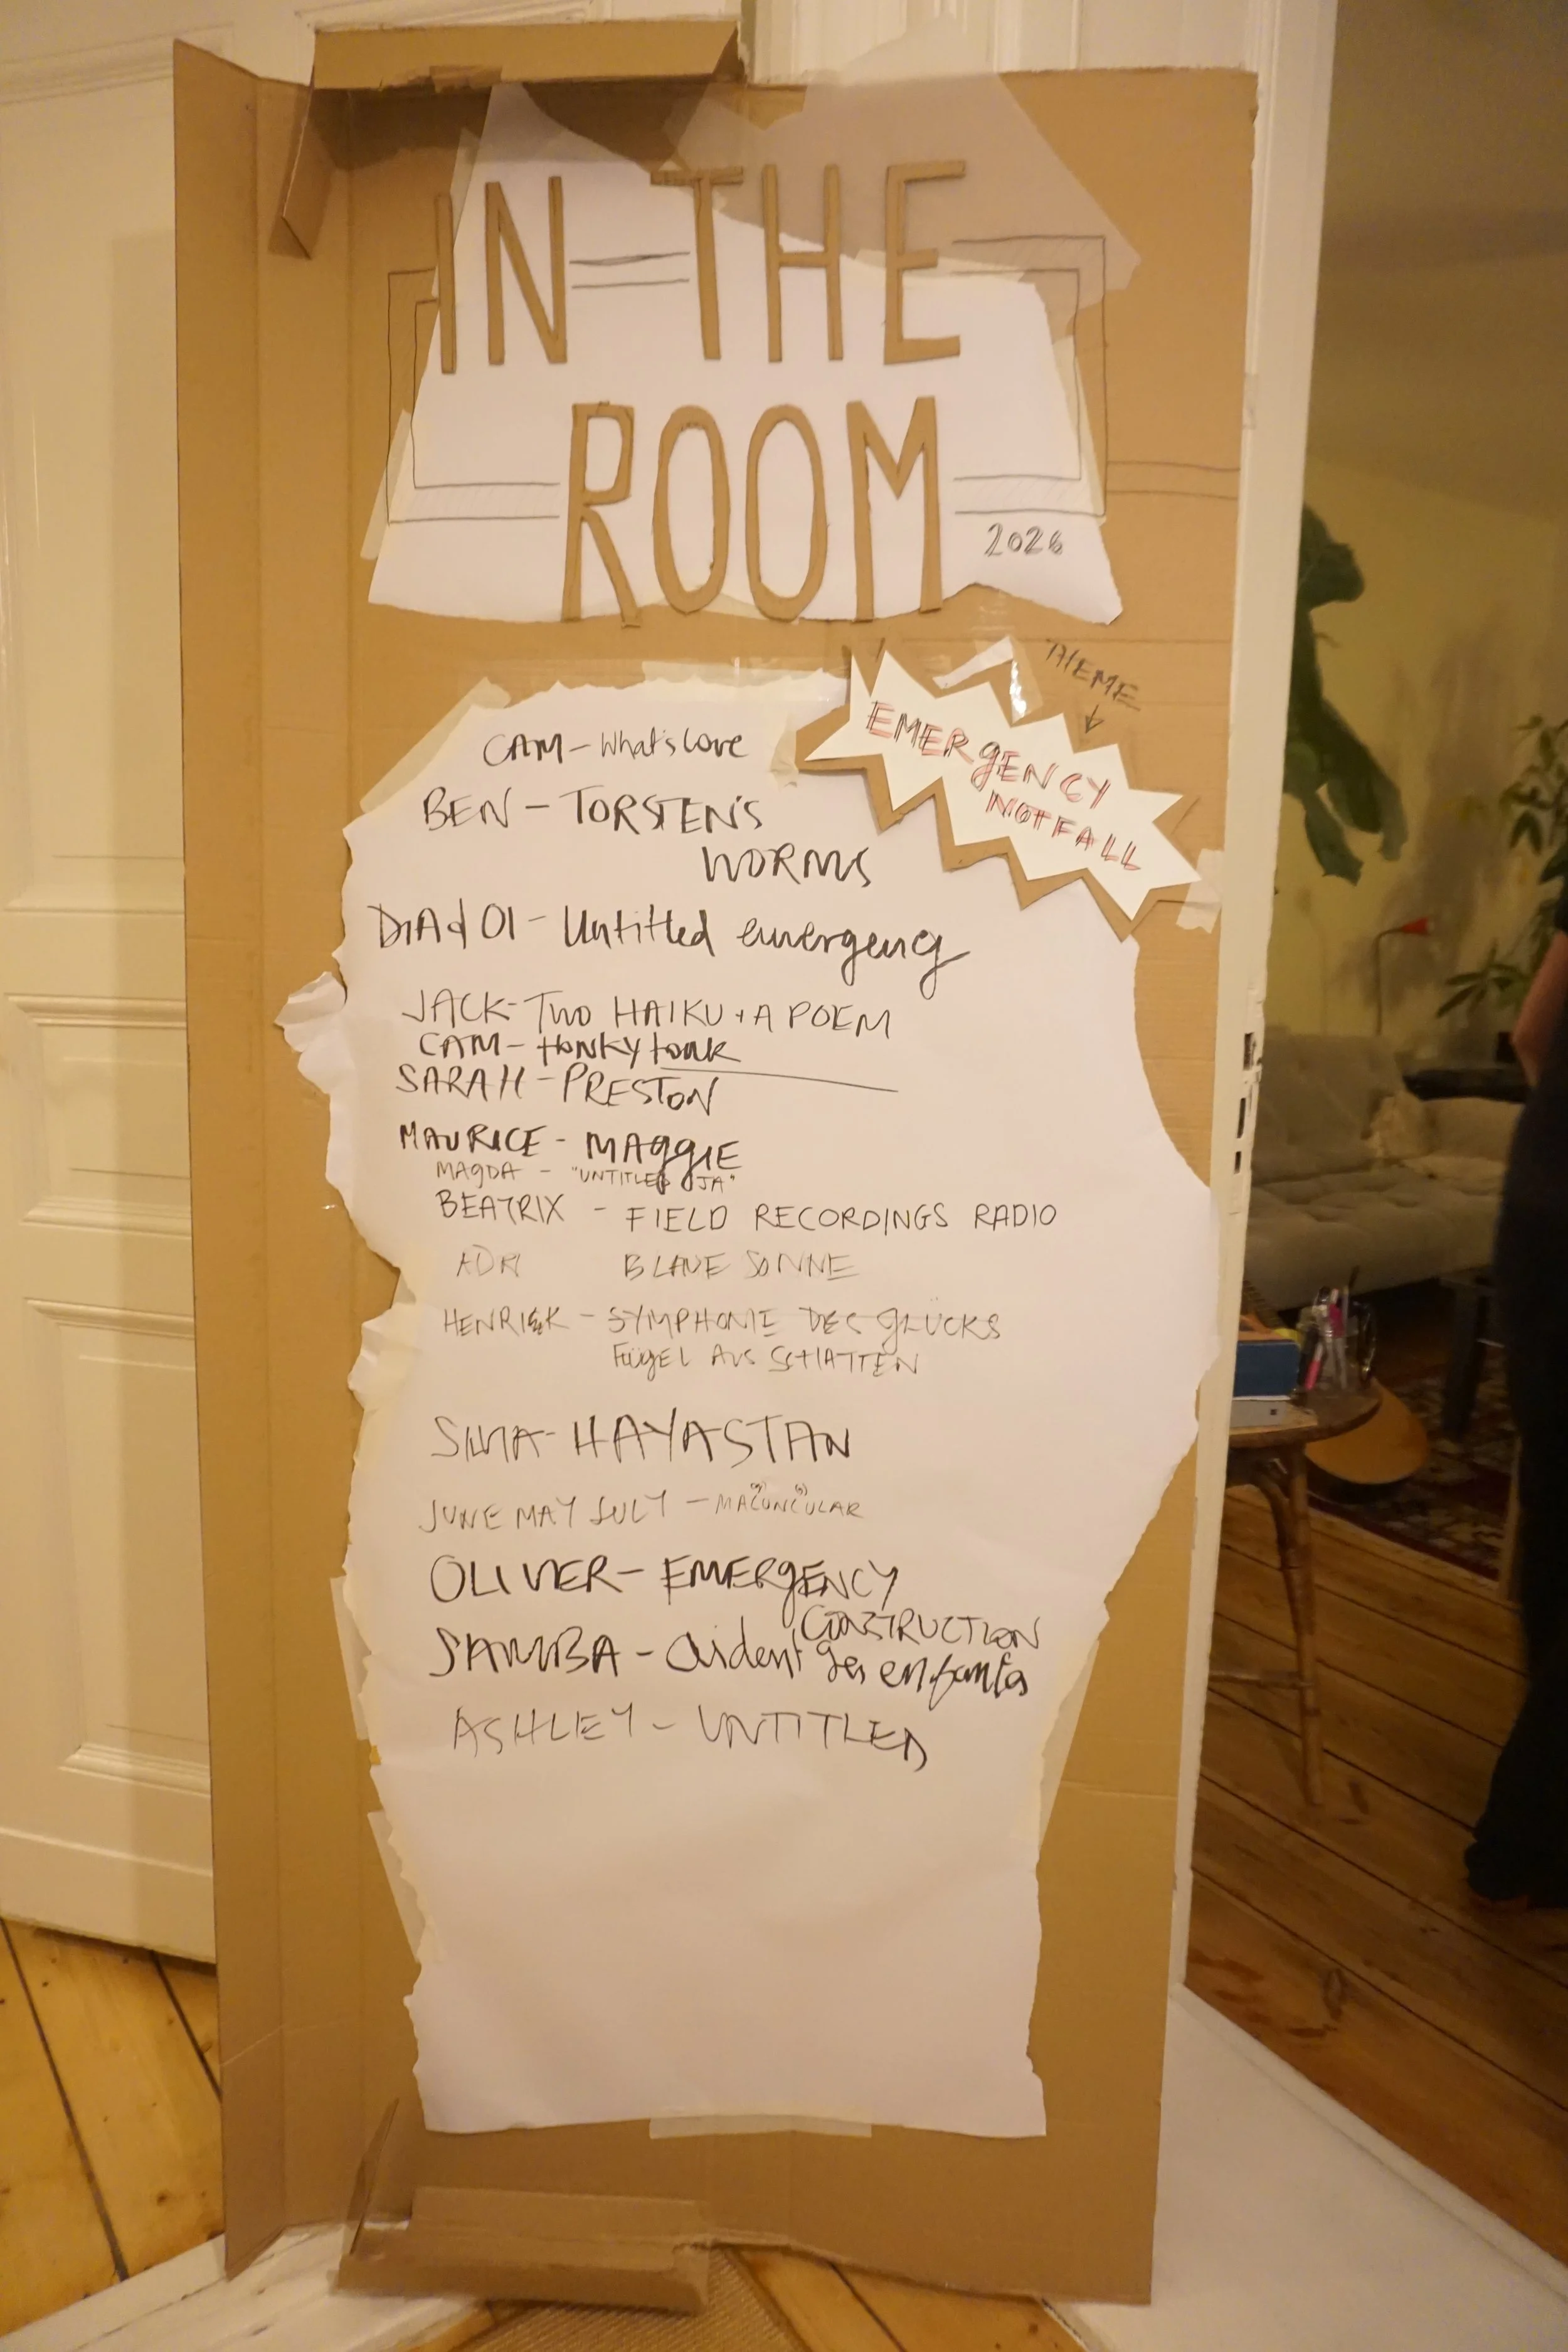 IN THE
ROOM
2026
THEME
EMERGENCY
NOTFALL
CAM - What's Love
BEN - TORSTEN'S
WORMS
JACK - TWO HAIKU + A POEM
CAM - HONKY tonk
SARAH - PRESTON
MAURICE - MAGGIE
MAGDA - "UNTITLED JA"
BEATRIX - FIELD RECORDINGS RADIO
ADRI BLAUE SONNE
SYMPHONIE DES GLÜCKS
FLÜGEL AUS SCHATTEN
SILVIA - HAYASTAN
JUNE MAY JULY -
OLIVER - EMERGENCY
CONSTRUCTION
SAMBA - enfants
ASHLEY - UNTITLED